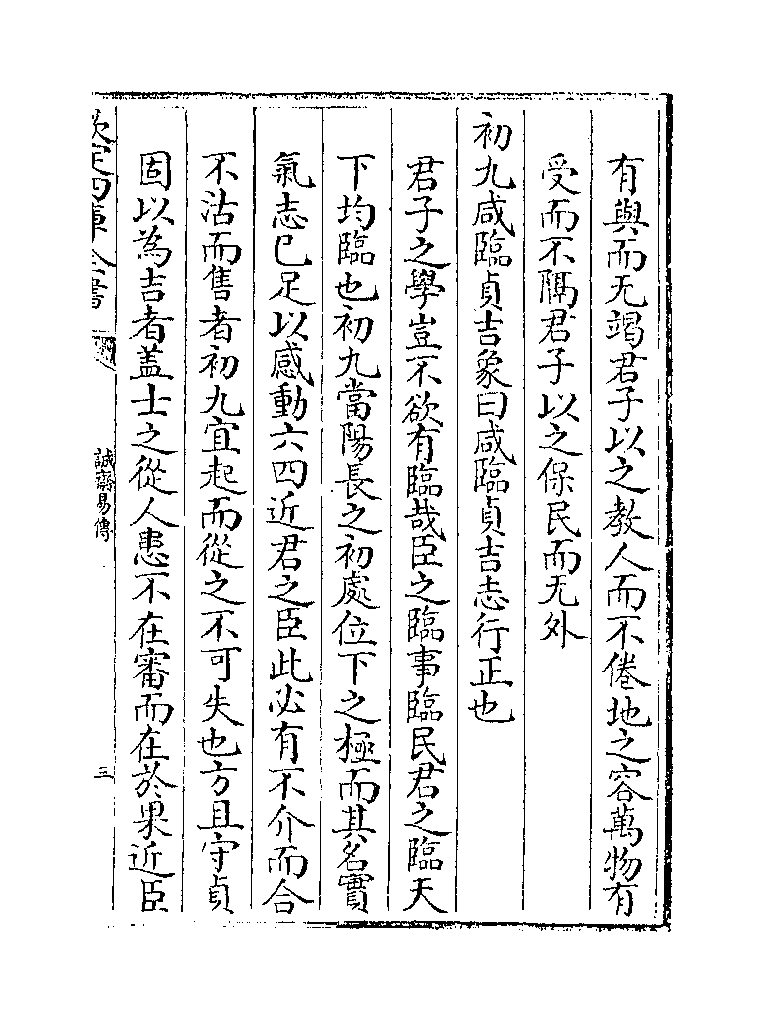 有與而无竭君子以之教人而不倦地之容萬物有
受而不隔君子以之保民而无外
初九咸臨貞吉象曰咸臨貞吉志行正也
君子之學豈不欲有臨哉臣之臨事臨民君之臨天
下均臨也初九當陽長之初處位下之極而其名實
氣志已足以感動六四近君之臣此必有不介而合
不沽而售者初九宜起而從之不可失也方且守貞
固以為吉者盖士之從人患不在審而在於果近臣
欽定四庫全書
誠齋易傳
三